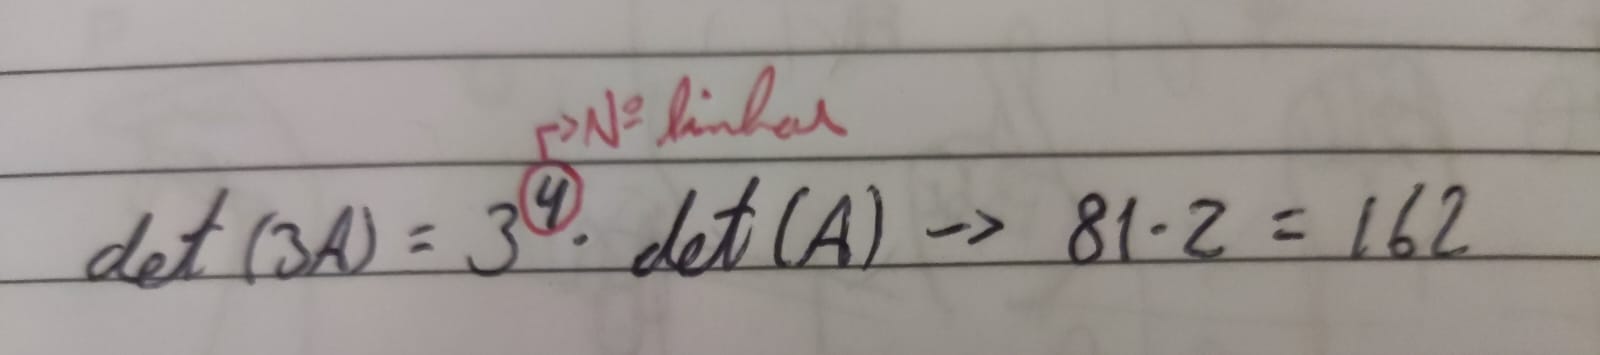 →Nº linhas
det (3A) = 3⁴ · det (A) → 81 · 2 = 162